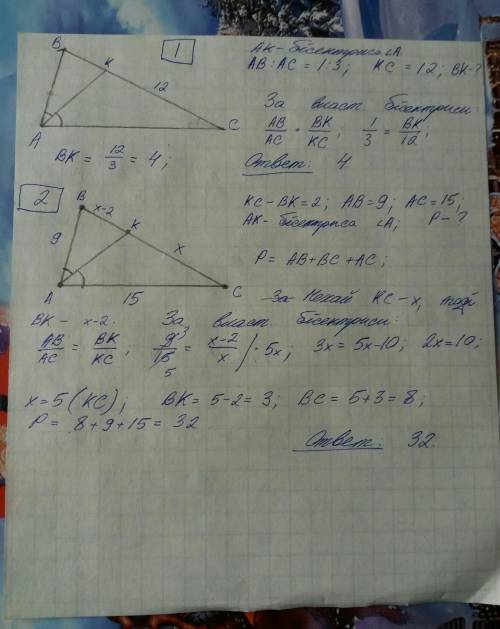 1
AK - бісектриса ∠A
AB : AC = 1:3; KC = 12; BK - ?
B
K
12
A
C
За власт. бісектриси:
AB/AC = BK/KC; 1/3 = BK/12;
BK = 12/3 = 4;
Ответ: 4
2
KC - BK = 2; AB = 9; AC = 15;
AK - бісектриса ∠A; P - ?
B
x-2
K
9
x
A
15
C
P = AB + BC + AC;
За Нехай KC - x, тоді
BK - x-2. За власт. бісектриси:
AB/AC = BK/KC; 9 3/15 5 = x-2/x / · 5x; 3x = 5x-10; 2x = 10;
x = 5 (KC); BK = 5-2 = 3; BC = 5+3 = 8;
P = 8+9+15 = 32
Ответ: 32